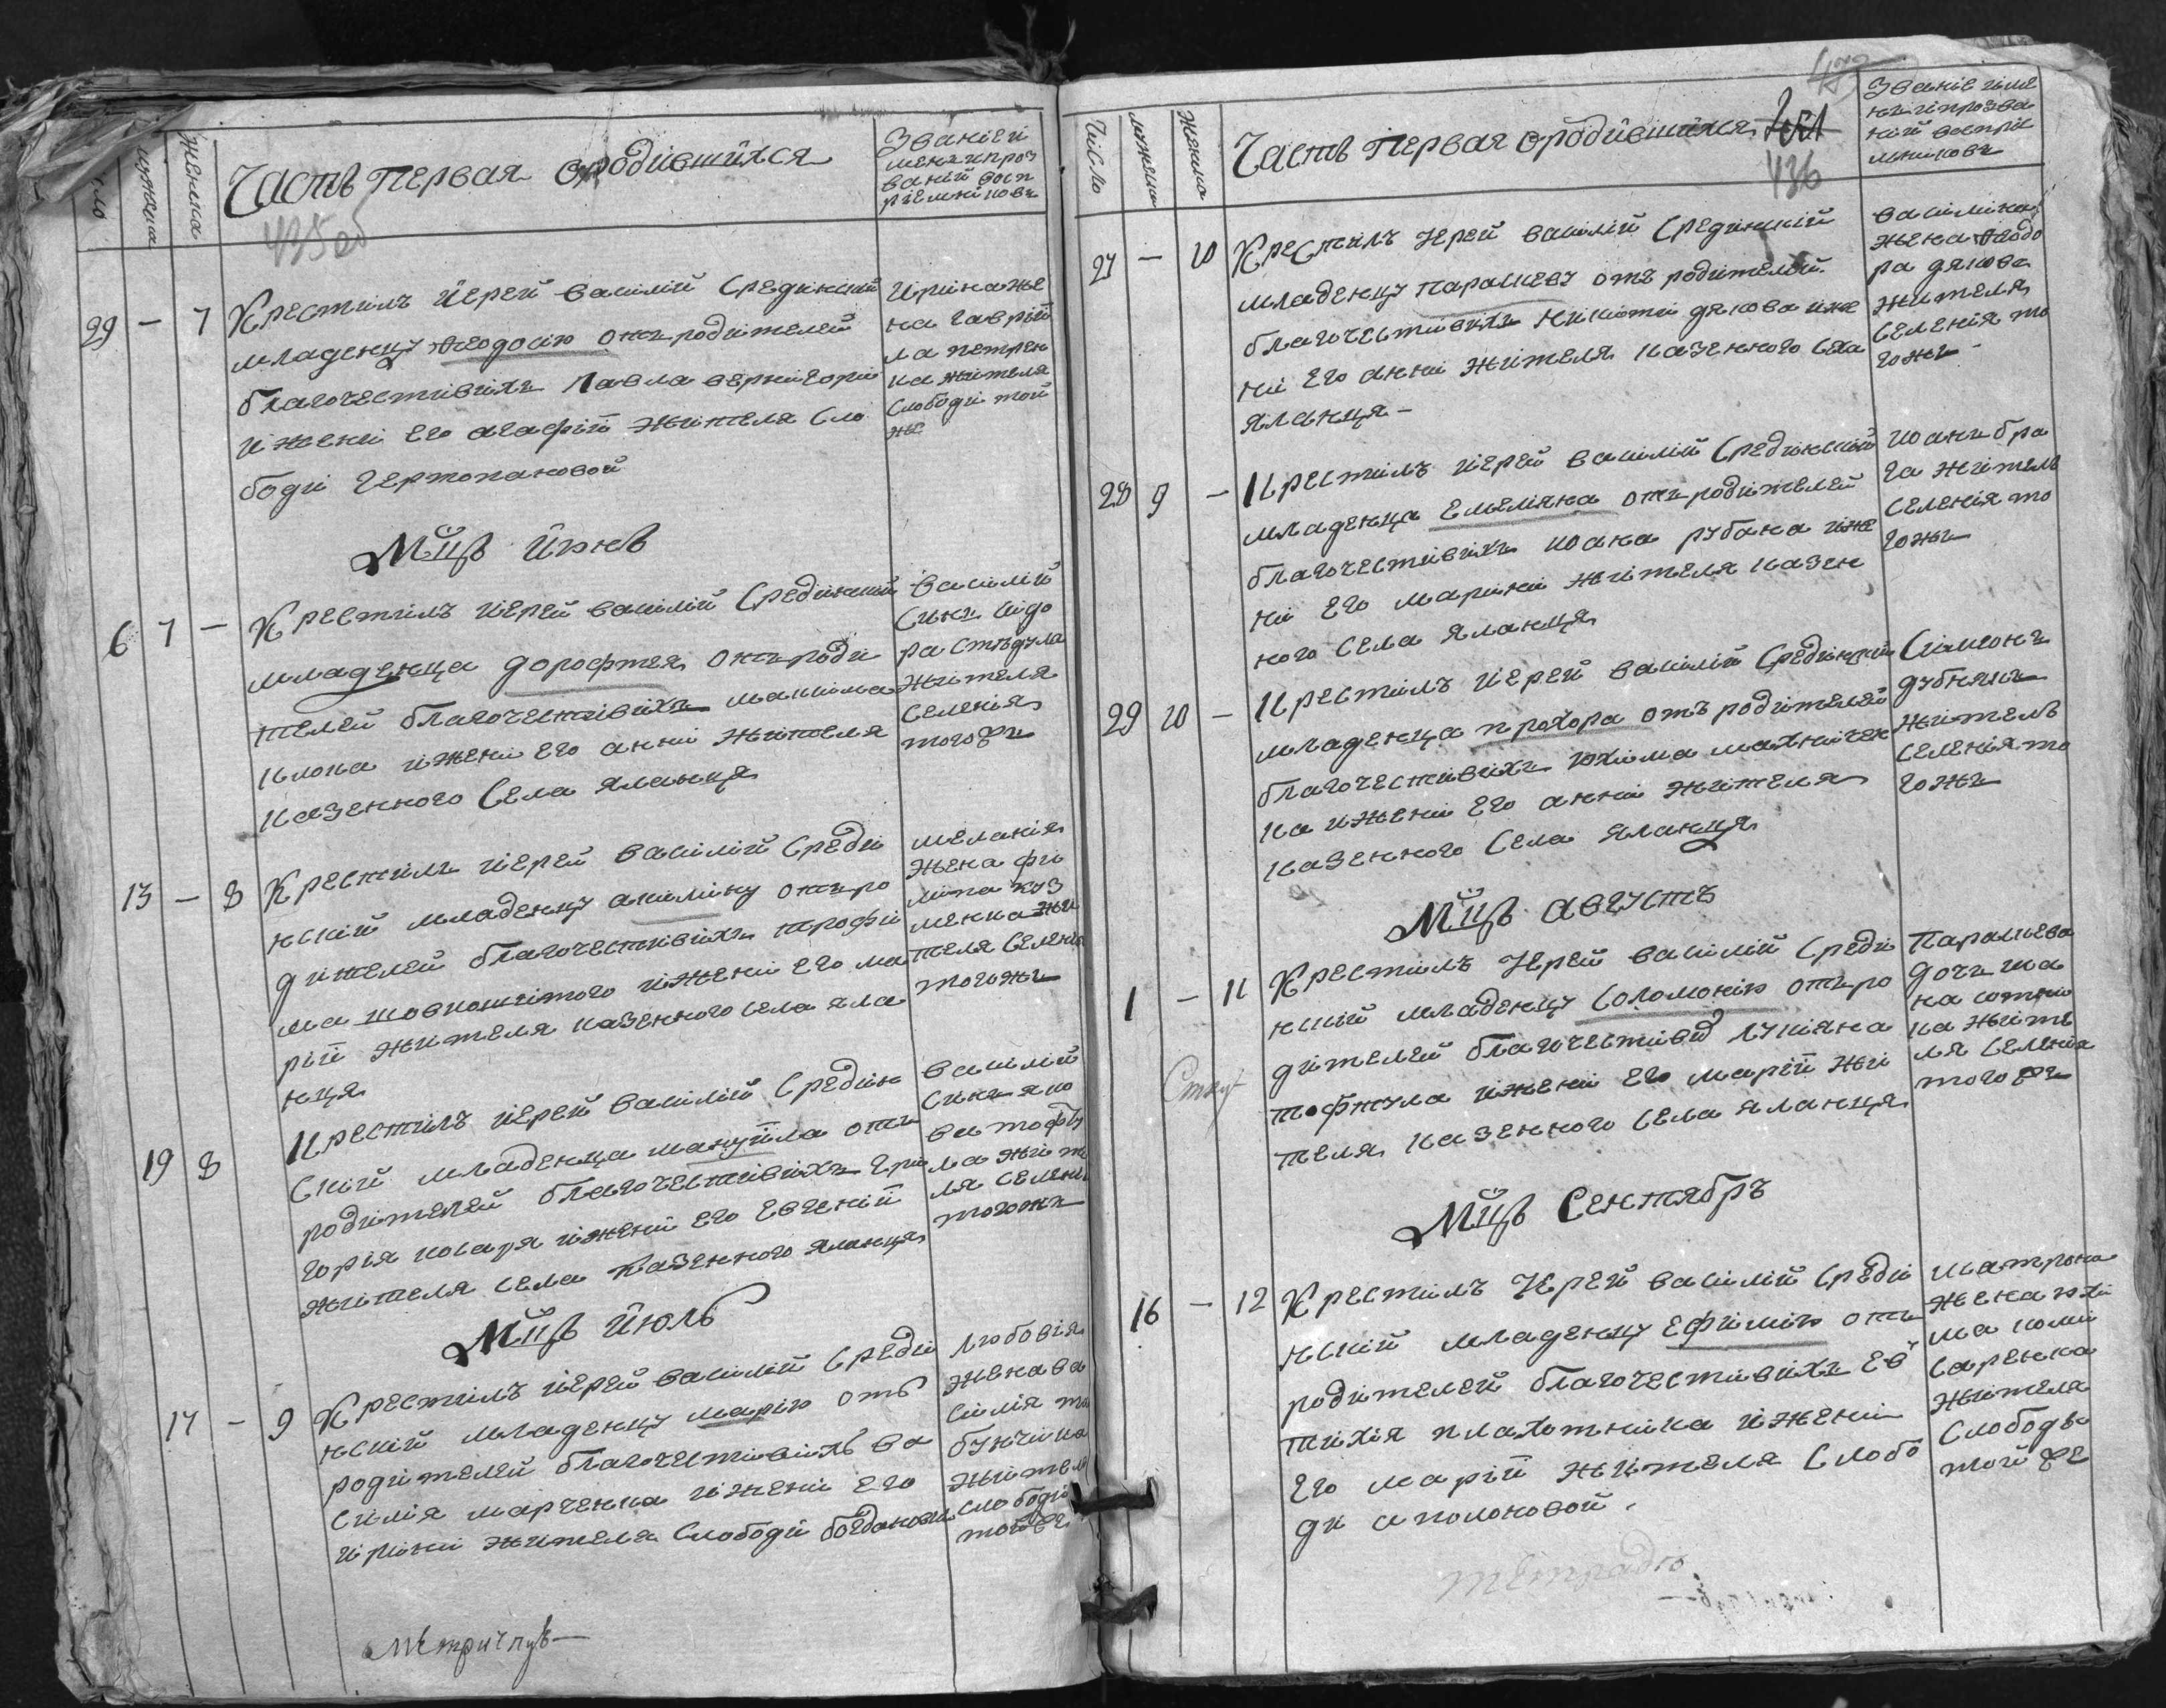 мужеска
женска
Часть Первая ородившихся
Званіе и
мена ипроз
ваній восп
ріемніковъ
435 об
29 — 7
Крестилъ Иерей василій Средінский
младенцу феодосію отъ родителей
благочестивихъ Павла вернігори
и жени его агафіи жителя Сло
боди Чертопановой
Иріна же
на гаврії
ла петрен
ка жителя
Слободи той
же
Мцъ Июнь
6 7 —
Крестилъ иерей василій Средінский
младенца дорофтея отъ роди
телей благочестивихъ максима
клюка и жени его анни жителя
казенного Села яланця
василій
Синъ Сідо
ра
жителя
Селенія
тогожъ
13 — 8
Крестилъ иерей василій Среди
нский младенцу акилину отъ ро
дителей благочестивихъ трофи
ма и жени его ма
рії жителя казенного села яла
нця
меланія
жена фи
ліпа куз
менка жи
теля Селенія
тогожъ
19 8
Крестилъ иерей василій Средін
Ский младенца мануїла отъ
родителей благочестивихъ Гри
горія косаря и жени его Евгеній
жителя села казенного яланця
василій
Синъ яко
ва тофту
ла жите
ля Селенія
тогожъ
Мцъ Июль
17 — 9
Крестилъ иерей василій Среди
нский младенцу марію отъ
родителей благочестивихъ ва
силія марченка и жени его
Ирини жителя Слободи богданови
Любовія
жена ва
силія
бунчика
жителя
слободи
той же
Число
мужеска
женска
Часть Первая ородившихся
436
Званіе имя
на и прозва
ній воспріе
мниковъ
27 — 10
Крестилъ Иерей василій Средінский
младенцу параскеву отъ родителей
благочестивихъ никити дякова и же
ни его анни жителя казенного села
яланця —
василина
жена феодо
ра дякова
жителя
Селенія то
гожъ
28 9 —
Крестилъ иерей василій Средінский
младенца Емеліяна отъ родителей
благочестивихъ иоана рубана и же
ни его марини жителя казен
ного Села яланця
иоанъ бра
га житель
Селенія то
гожъ
29 10 —
Крестилъ иерей василій Средінский
младенца прохора отъ родителей
благочестивихъ юхима махничен
ка и жени его анни жителя
казенного Села яланця
Симеонъ
дубнякъ
житель
Селенія то
гожъ
Мцъ августъ
1 — 11
Крестилъ Иерей василій Среди
нский младенцу Соломонію отъ ро
дителей благочестивих лукіяна
тофтула и жени его марії жи
теля казенного села яланця
Параскева
дочъ ива
на сотни
ка жите
ля Селенія
тогожъ
Мцъ Сентябръ
16 — 12
Крестилъ Иерей василій Среди
нский младенцу Ефимію отъ
родителей благочестивихъ Ев
тихія плахотника и жени
его марії жителя Слобо
ди аполоновой.
матрона
жена юхи
ма коми
саренка
жителя
Слободы
той же
тетрадю